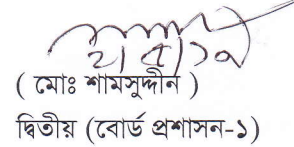 ( মোঃ শামসুদ্দীন )
দ্বিতীয় (বোর্ড প্রশাসন-১)